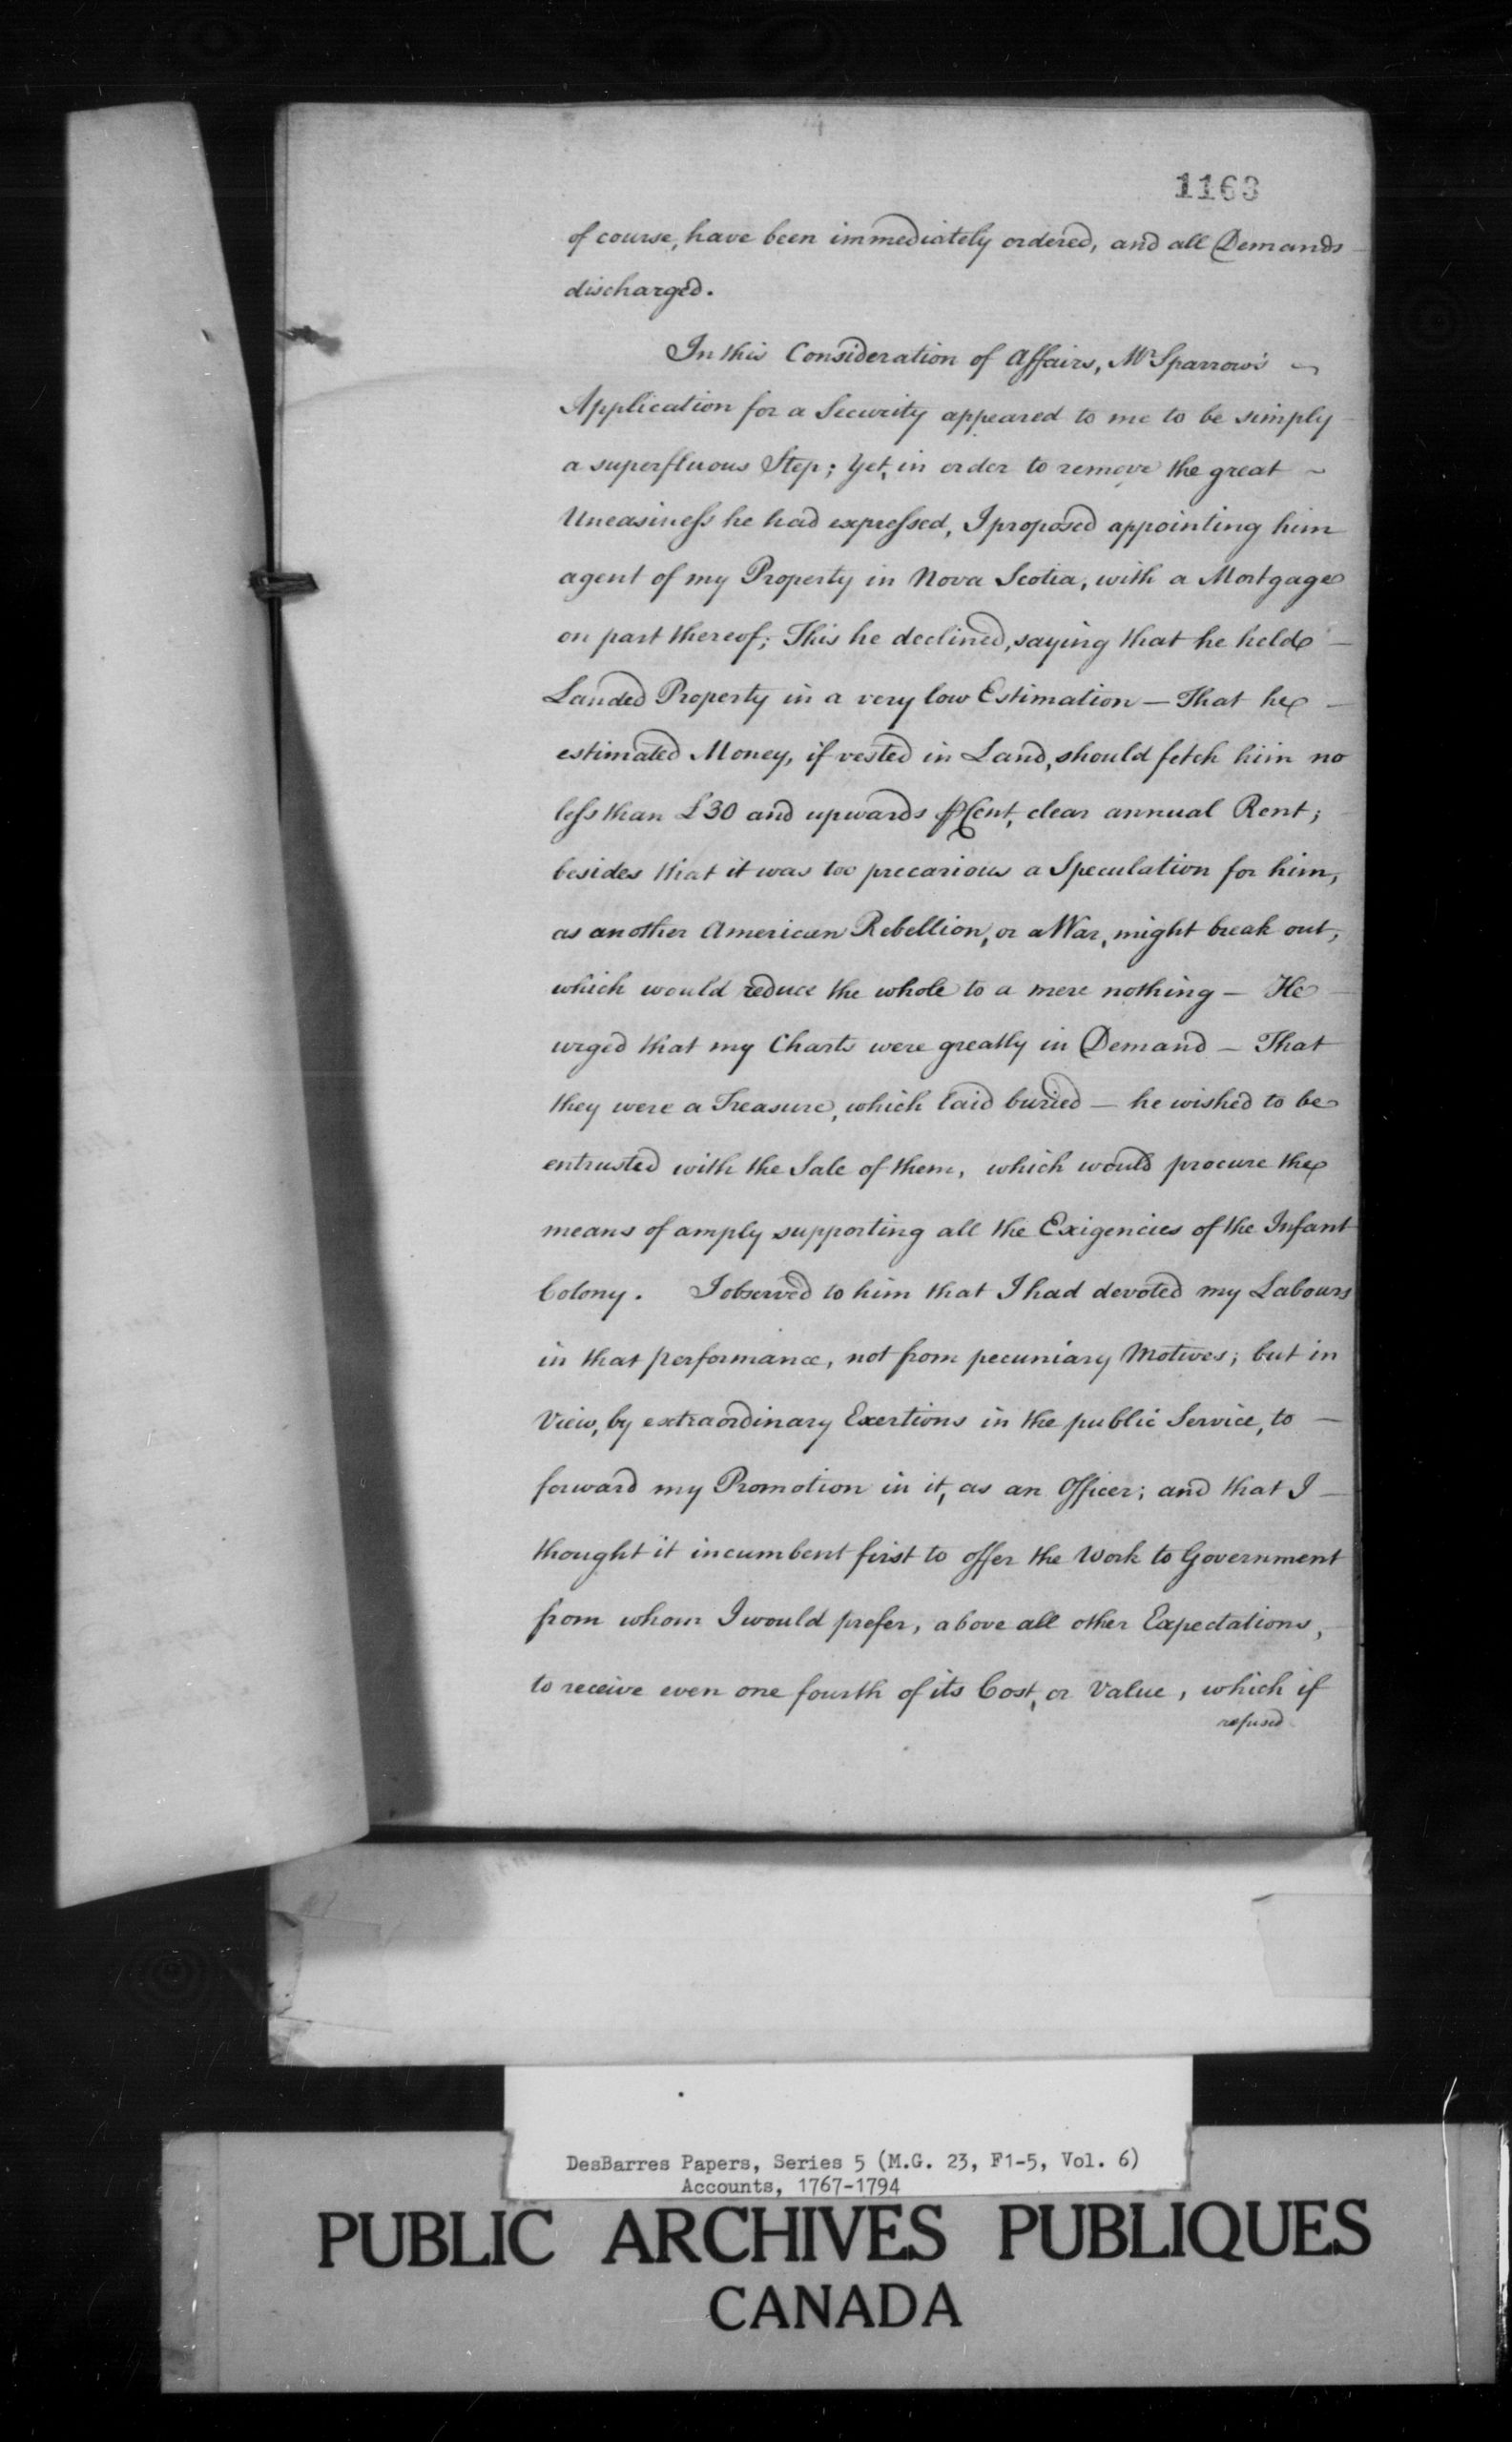 4
1163
of course, have been immediately ordered, and all Demands
discharged.
In this Consideration of Affairs, Mr Sparrow's
Application for a Security appeared to me to be simply
a superfluous Step; Yet, in order to remove the great
Uneasiness he had expressed, I proposed appointing him
agent of my Property in Nova Scotia, with a Mortgage
on part thereof; This he declined, saying that he held —
Landed Property in a very low Estimation — That he —
estimated Money, if vested in Land, should fetch him no
less than £30 and upwards ⅌ Cent, clear annual Rent;
besides that it was too precarious a Speculation for him,
as another American Rebellion, or a War, might break out,
which would reduce the whole to a mere nothing — He
urged that my Charts were greatly in Demand — That
they were a Treasure, which laid buried — he wished to be
entrusted with the Sale of them, which would procure the
means of amply supporting all the Exigencies of the Infant
Colony. I observed to him that I had devoted my Labours
in that performance, not from pecuniary Motives; but in
View, by extraordinary Exertions in the public Service, to —
forward my Promotion in it, as an Officer; and that I —
thought it incumbent first to offer the Work to Government
from whom I would prefer, above all other Expectations,
to receive even one fourth of its Cost, or Value, which if
refused
DesBarres Papers, Series 5 (M.G. 23, F1-5, Vol. 6)
Accounts, 1767-1794
PUBLIC ARCHIVES PUBLIQUES
CANADA